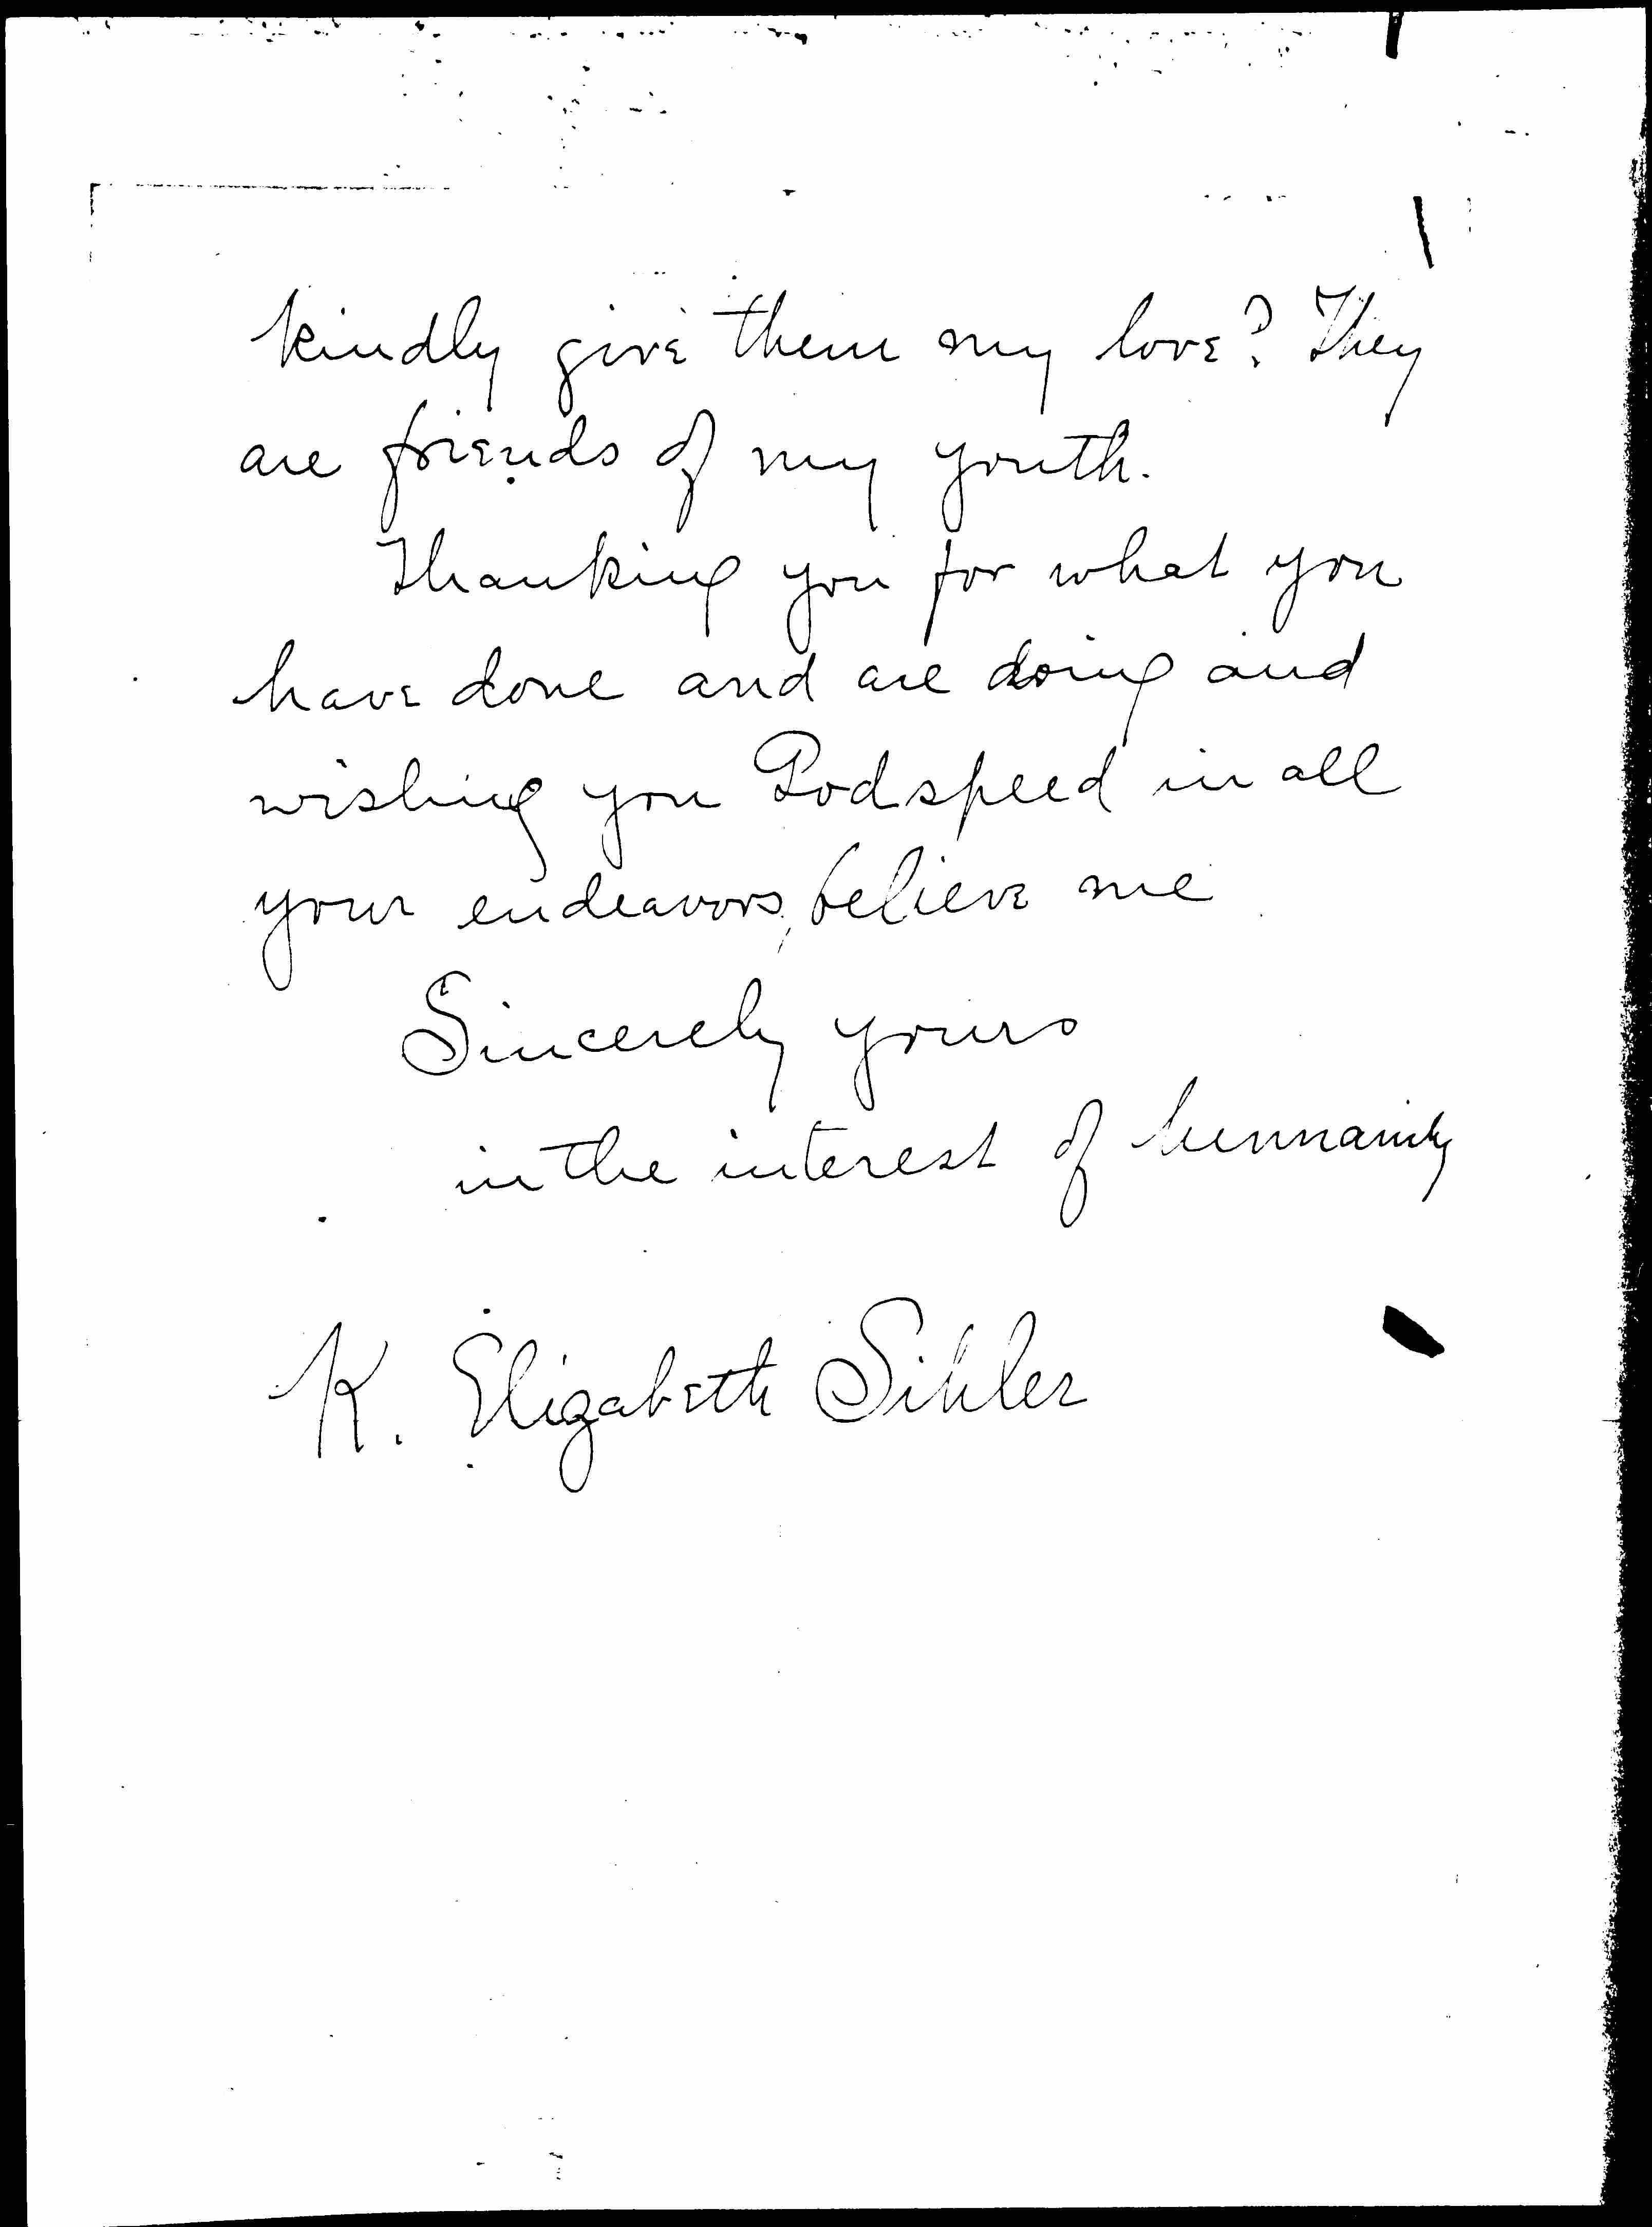 kindly give them my love? They
are friends of my youth.
Thanking you for what you
have done and are doing and
wishing you Godspeed in all
your endeavors, believe me
Sincerely yours
in the interest of humanity
K. Elizabeth Sihler